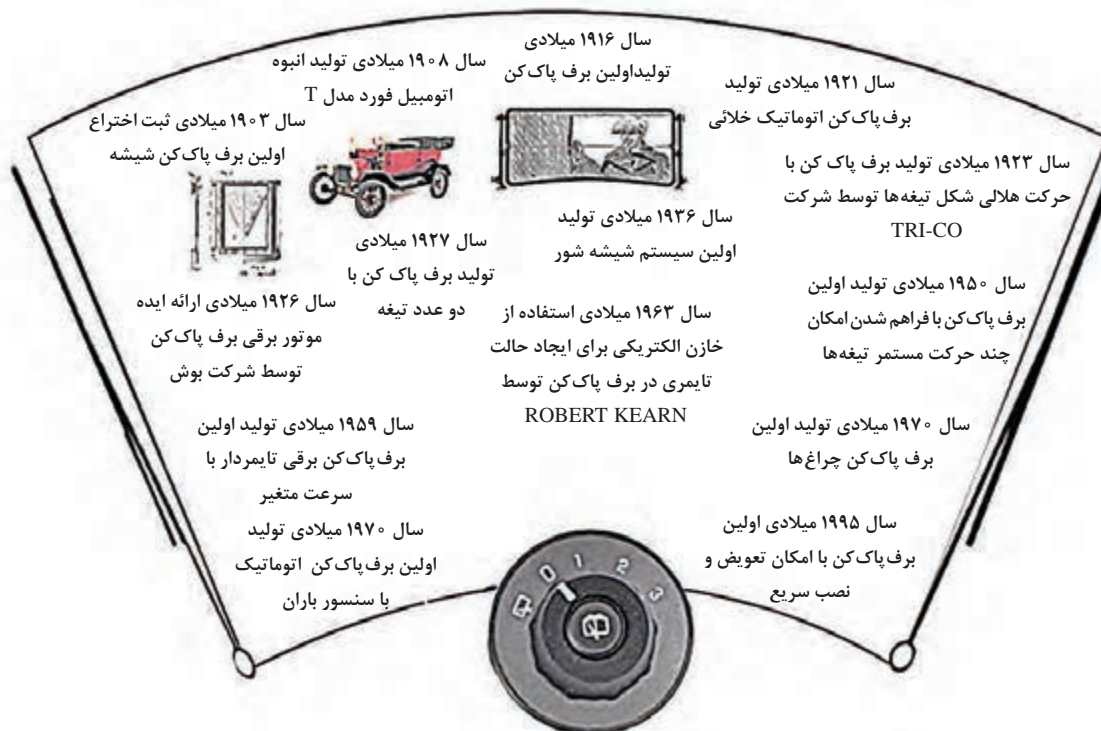 سال ۱۹۰۳ میلادی ثبت اختراع
اولین برف پاک‌کن شیشه
سال ۱۹۰۸ میلادی تولید انبوه
اتومبیل فورد مدل T
سال ۱۹۱۶ میلادی
تولیداولین برف پاک‌کن
سال ۱۹۲۱ میلادی تولید
برف‌پاک‌کن اتوماتیک خلائی
سال ۱۹۲۳ میلادی تولید برف پاک کن با
حرکت هلالی شکل تیغه‌ها توسط شرکت
TRI-CO
سال ۱۹۲۶ میلادی ارائه ایده
موتور برقی برف پاک‌کن
توسط شرکت بوش
سال ۱۹۲۷ میلادی
تولید برف پاک کن با
دو عدد تیغه
سال ۱۹۳۶ میلادی تولید
اولین سیستم شیشه شور
سال ۱۹۵۰ میلادی تولید اولین
برف پاک‌کن با فراهم شدن امکان
چند حرکت مستمر تیغه‌ها
سال ۱۹۵۹ میلادی تولید اولین
برف‌پاک‌کن برقی تایمردار با
سرعت متغیر
سال ۱۹۶۳ میلادی استفاده از
خازن الکتریکی برای ایجاد حالت
تایمری در برف پاک‌کن توسط
ROBERT KEARN
سال ۱۹۷۰ میلادی تولید اولین
برف پاک‌کن چراغ‌ها
سال ۱۹۷۰ میلادی تولید
اولین برف‌پاک‌کن اتوماتیک
با سنسور باران
سال ۱۹۹۵ میلادی اولین
برف‌پاک‌کن با امکان تعویض و
نصب سریع
0 1 2 3